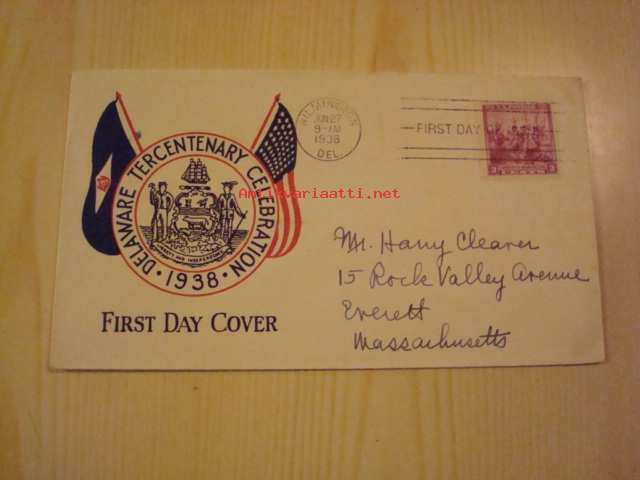 DELAWARE TERCENTENARY CELEBRATION
· 1938 ·
LIBERTY AND INDEPENDENCE
FIRST DAY COVER
WILMINGTON
JUN 27
9-AM
1938
DEL.
FIRST DAY OF
3
3
Antikvariaatti.net
Mr. Harry Cleaver
15 Rock Valley Avenue
Everett
Massachusetts